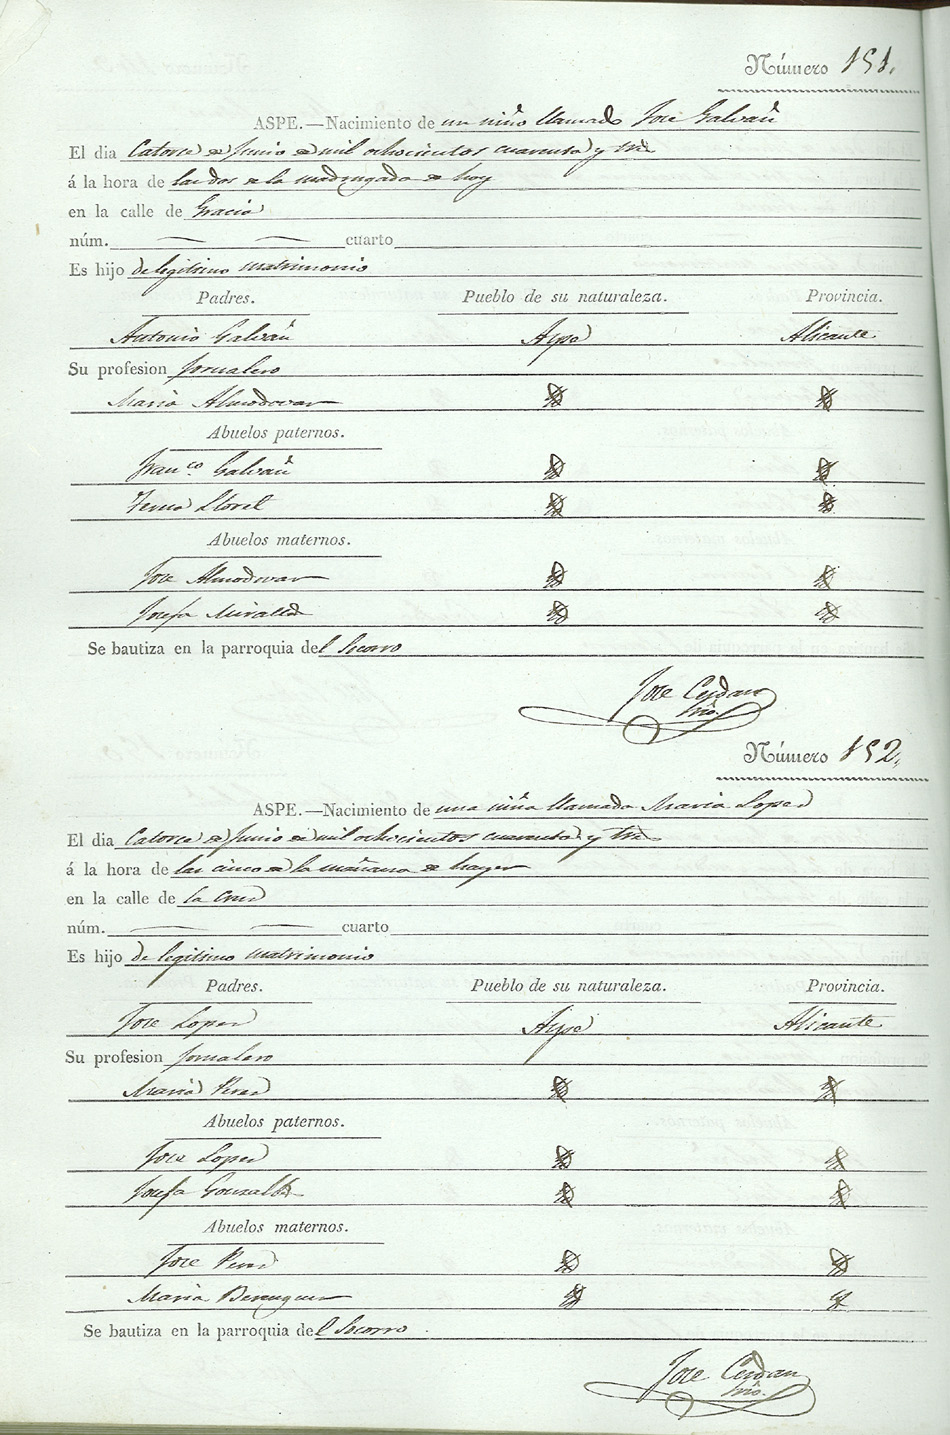 Número 151.
ASPE.—Nacimiento de un niño llamado Jose Galvañ
El dia Catorce de Junio de mil ochocientos cuarenta y tres
á la hora de las dos de la madrugada de hoy
en la calle de Gracia
núm. cuarto
Es hijo de legitimo matrimonio
Padres. Pueblo de su naturaleza. Provincia.
Antonio Galvañ Aspe Alicante
Su profesion Jornalero
Maria Almodovar
Abuelos paternos.
Franco. Galvañ
Lloret
Abuelos maternos.
Jose Almodovar
Josefa Miralles
Se bautiza en la parroquia del Socorro
Jose Cerdan
Srio.
Número 152.
ASPE.—Nacimiento de una niña llamada Maria Lopez
El dia Catorce de Junio de mil ochocientos cuarenta y tres
á la hora de las cinco de la mañana de
en la calle de la Cruz
núm. cuarto
Es hijo de legitimo matrimonio
Padres. Pueblo de su naturaleza. Provincia.
Jose Lopez Aspe Alicante
Su profesion Jornalero
Maria Perez
Abuelos paternos.
Jose Lopez
Josefa Gonzalez
Abuelos maternos.
Jose Perez
Maria Berenguer
Se bautiza en la parroquia del Socorro
Jose Cerdan
Srio.